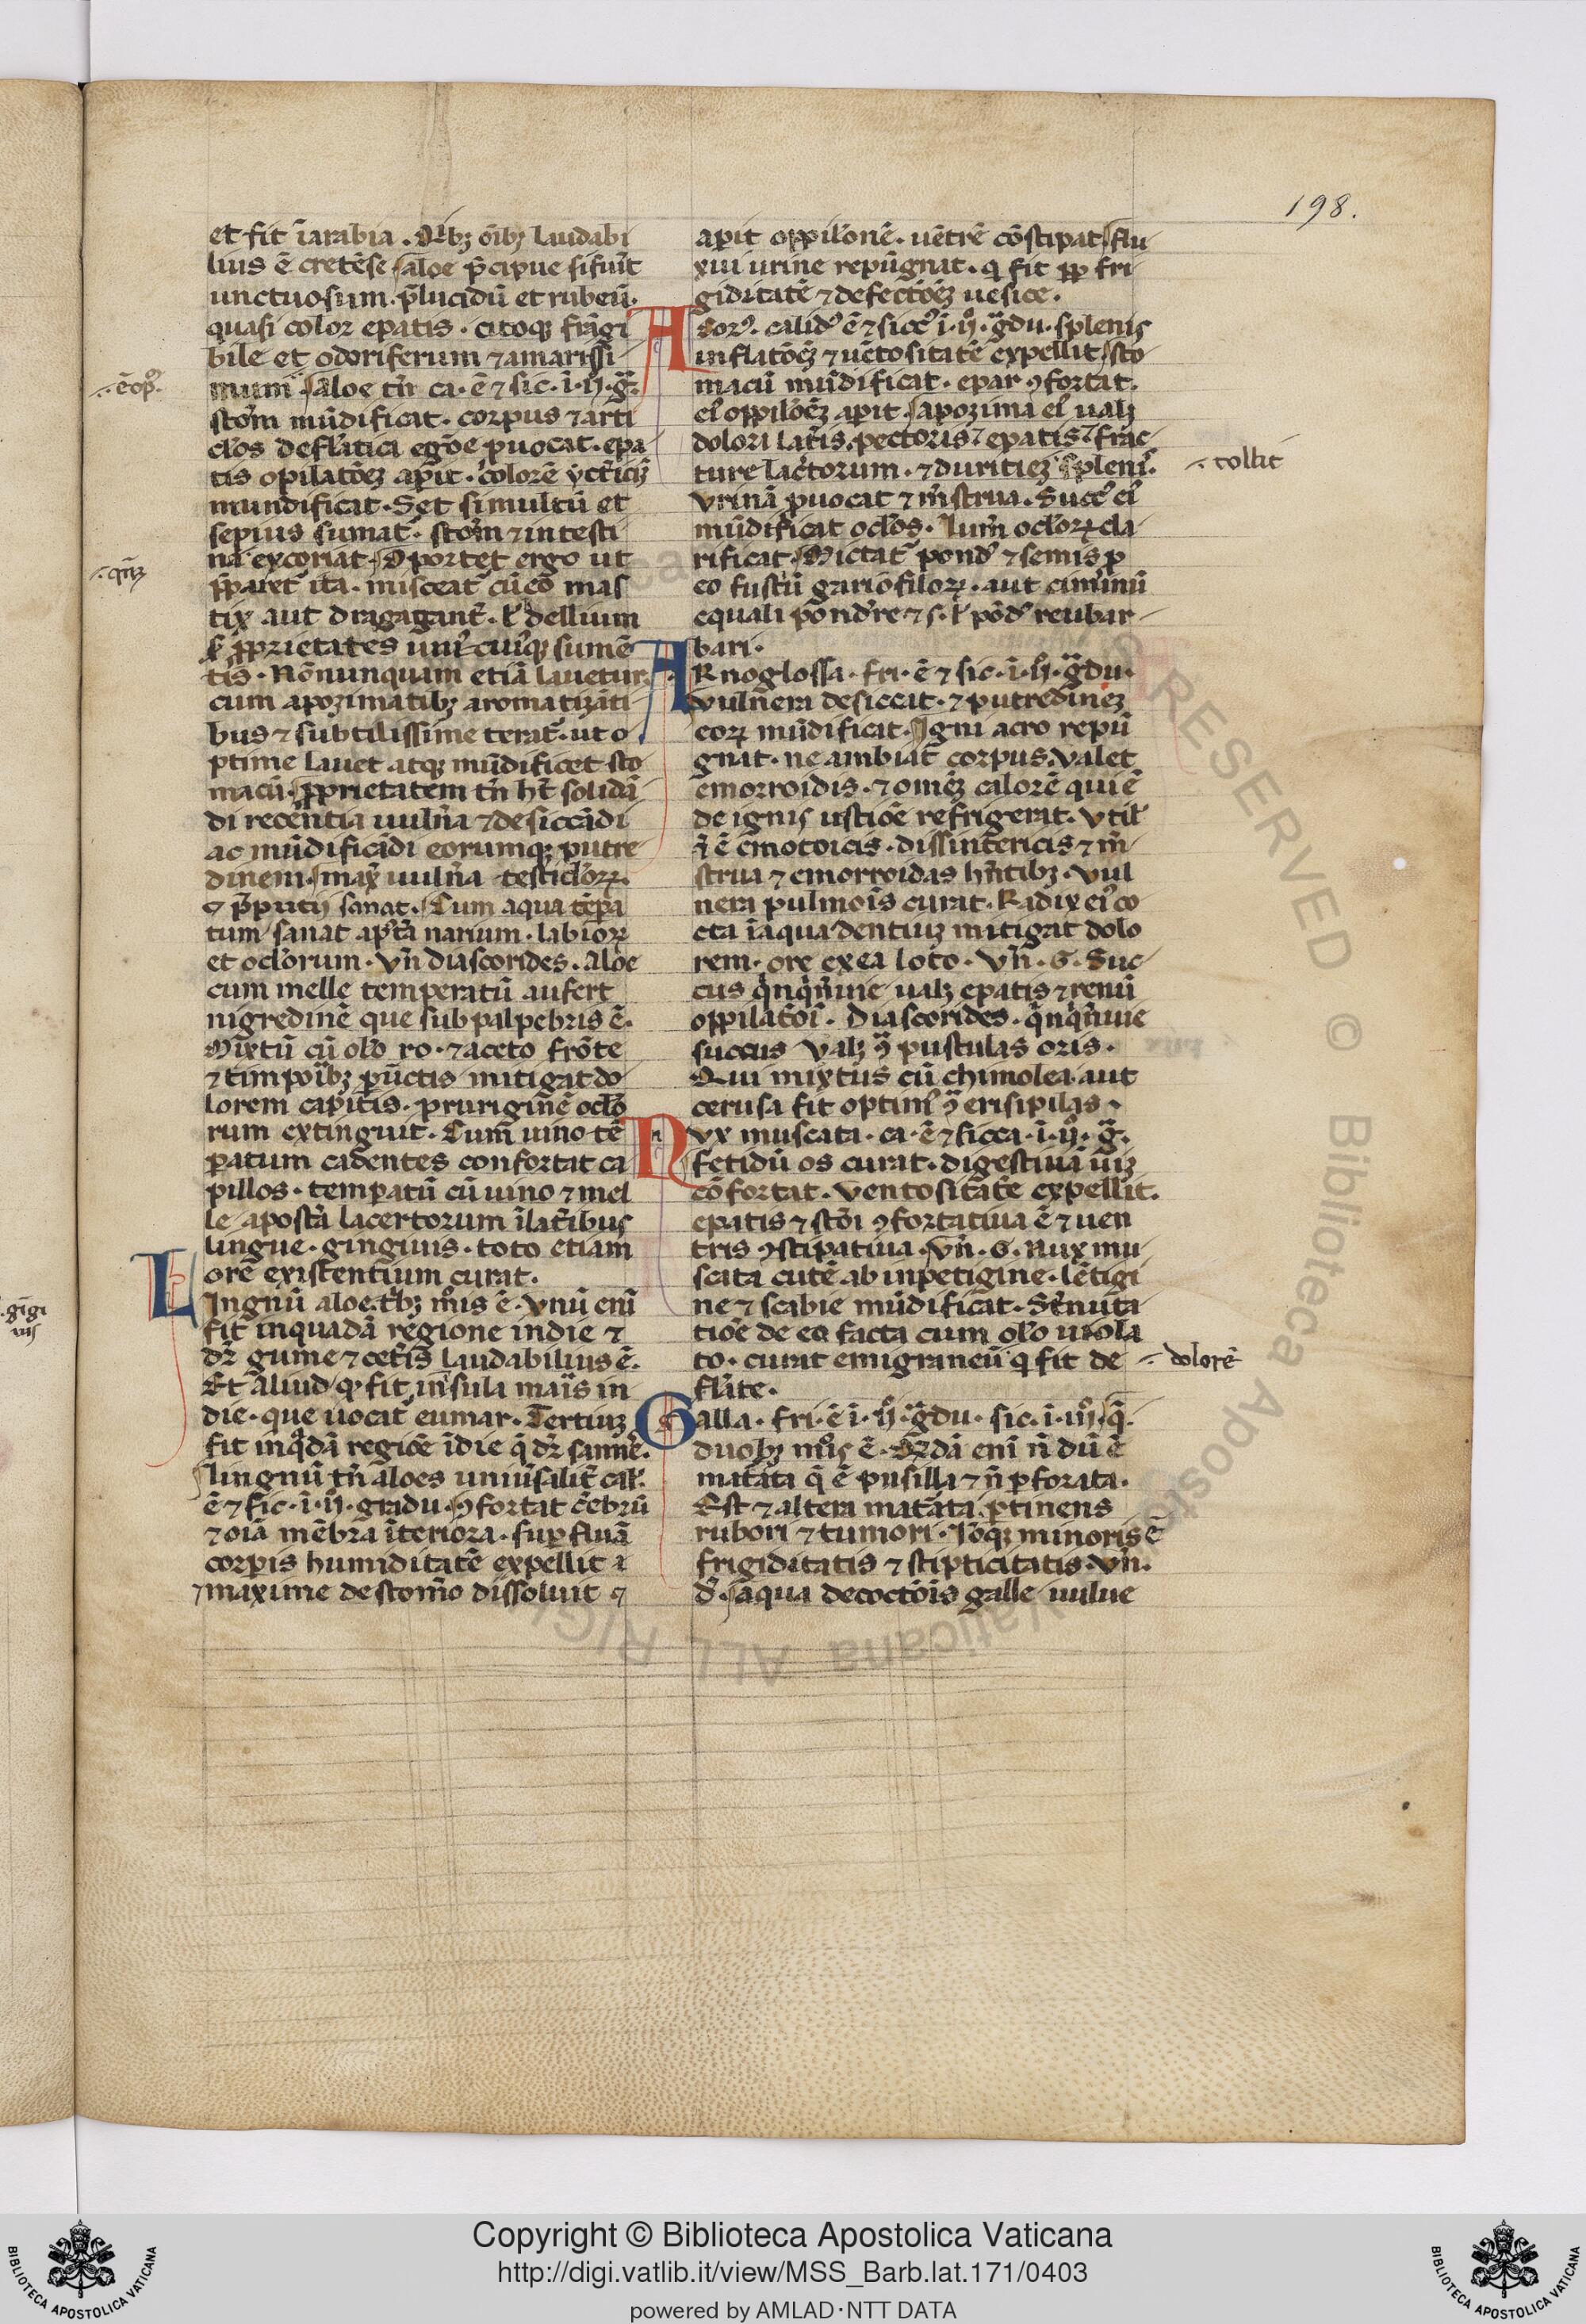 198.
et fit ĩ arabia . Oĩbꝫ oĩbꝫ laudabi
lius ē cretēse aloe p̄cipue si fuit̃
unctuosum. p̄lucidũ et rubeũ.
quasi color epatis . citoqꝫ frãgi
bile et odoriferum ⁊ amarissi
mum aloe tñ ca. ē ⁊ sic. ĩ. ij. g̃.
∴ ē op̃
stom̃ mũdificat . corpus ⁊ arti
cl̃os de fl̃atici egõe ꝓuocat. epa
tis opilatõeꝫ aꝑit . colorẽ yct̃iciꝫ
mundificat. Set si multũ et
sepius sumat̃ . stom̃ ⁊ intesti
na excoriat. Oportet ergo ut
∴ qm̃ꝫ
p̱paret̃ ita . misceat̃ cũ eo mas
tix aut dragagant̃ . ł dellium
ꝓprietates uni⁹cui⁹qꝫ sumẽ
tis . Nõnunquam etiã lauetur
cum apozimatibꝫ aromatizãti
bus ⁊ subtilissime terat̃ . ut o
ptime lauet atqꝫ mũdificet sto
macũ. ꝓprietatem tñ ht̃ solidã
di recẽntia uuln̄a ⁊ desiccãdi
ac mũdificãdi eorumqꝫ putre
dinem. max̃ uuln̄a testicl̃oꝝ.
⁊ p̃putij sanat. Cum aqua tẽpa
tum sanat apt̃a narium . labioꝝ
et ocl̃orum . Vñ diascorides . Aloe
cum melle temperatũ aufert
nigredinẽ que sub palpebris ē.
Mixtũ cũ ol̃o ro. ⁊ aceto frõte
⁊ timpoĩbꝫ ꝑũctis mitigat do
lorem capitis. pruriginẽ ocl̃o
rum extinguit. Cum uino tẽ
ꝑatum cadentes confortat ca
pillos . temꝑatũ cũ uino ⁊ mel
le apost̃a lacertorum ĩ lat̃ibus
lingue . gingiuis . toto etiam
ore existentium curat.
Lingnũ aloe t̃bꝫ m̊is ē . Vnũ enĩ
gĩgi
uis
fit in quadã regione indie ⁊
dr̃ gume ⁊ cet̃is laudabilius ē.
Et aliud qđ fit ĩ insula maĩs in
die . que uocat̃ eumar . Tertiuꝫ
fit in qͣdã regiõe ĩdie q̃ dr̃ samfe.
lingnũ tñ aloes uniũsalit̃ cal̃.
ē ⁊ sic . ĩ . ij . gradu . ꝯfortat cẽbrũ
⁊ oĩa mẽbra ĩteriora . suꝑfluã
corꝑis humiditatẽ expellit ⁊
⁊ maxime de stomõ dissoluit ⁊
aꝑit oppilõnẽ . uẽtrẽ cõstipat flu
xui urine repũgnat . q̃ fit ꝓp̃ fri
giditatẽ ⁊ defectõeꝫ uesice.
Acor⁹ . calid⁹ ē ⁊ sicc⁹ ĩ . ij̊ . g̃du . splenis
inflatõeꝫ ⁊ uẽtositatẽ expellit sto
macũ mũdificat . epar ꝯfortat.
ei⁹ oppilõeꝫ aꝑit . apozima ei⁹ ualꝫ
dolori lat̃is . pectoris ⁊ epatis ⁊ frac
ture lac̃torum . ⁊ duritieꝫ spleni⁹.
∴ tollit
Vrinã ꝓuocat ⁊ m̃strua . Succ⁹ ei⁹
mũdificat ocl̃os . lum̃ ocl̃oꝝ cla
rificat. Mictat̃ pond⁹ ⁊ semis ꝑ
eo fustũ gariofiloꝝ . aut ciminũ
equali pond̃re ⁊ s. ł põd⁹ reubar
bari.
ARnoglossa . fri . ē ⁊ sic. ĩ . ij̊ . g̃du.
Vuln̄era desiccat . ⁊ putredineꝫ
eoꝝ mũdificat. Igni acro repũ
gnat . ne ambiat corpus. Valet
emorroidis . ⁊ om̃eꝫ calorẽ qui ē
de ignis ustiõe refrigerat . Vtil̃
q̃ ē emotoicis . dissintericis ⁊ m̃
strua ⁊ emorroidas hñtibꝫ . Vul
nera pulmõis curat . Radix ei⁹ co
cta ĩ aqua dentiuꝫ mitigat dolo
rem . ore ex ea loto . Vñ . G . Suc
cus qͥnqͥnuie ualꝫ epatis ⁊ renũ
oppilatõi . Diascorides . qͥnqͥnuie
succus ualꝫ ꝯ̃ pustulas oris .
Qui mixtus cũ chimolea . aut
cerusa fit optim⁹ ꝯ̃ erisipilas .
Nux muscata . ca . ē ⁊ sicca . ĩ . ij̊ . g̃.
fetidũ os curat . digestiuã ũiꝫ
cõfortat . Ventositatẽ expellit.
epatis ⁊ stõi ꝯfortatiua ē ⁊ uen
tris ꝯstipatiua . Vñ . G . Nux mu
scata cutẽ ab inpetigine . lẽtigi
ne ⁊ scabie mũdificat . St̃nuta
tiõe de ea facta cum ol̃o uiola
to . curat emigraneũ q̃ fit de
∴ dolorẽ
fl̃ate .
Galla . fri . ē ĩ . ij̊ . g̃du . sic . ĩ . iij̊ . q̃.
duobꝫ m̊is ē . Q̃dã enĩ ñ dũ ē
mat̃ata q̃ ē pusilla ⁊ ñ ꝑforata.
Est ⁊ altera mat̃ata ꝑtinens
rubori ⁊ tumori . Iõqꝫ minoris ē
frigiditatis ⁊ stipticitatis . Vñ.
d̃ . ĩ aqua decoctõis galle uulue
Copyright © Biblioteca Apostolica Vaticana
http://digi.vatlib.it/view/MSS_Barb.lat.171/0403
powered by AMLAD·NTT DATA
BIBLIOTECA APOSTOLICA VATICANA
BIBLIOTECA APOSTOLICA VATICANA